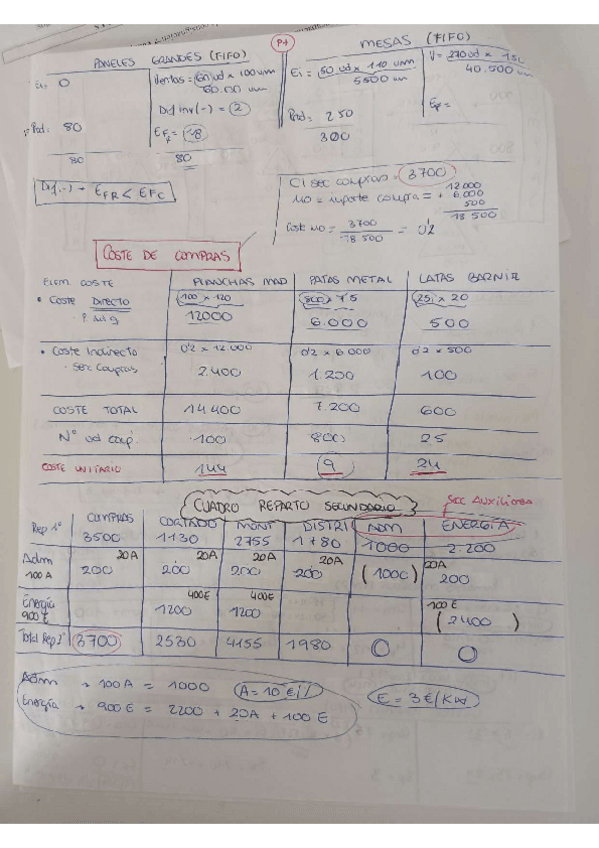 PANELES GRANDES (FIFO)
Ei, 0
Ventas = 60 ud x 100 um
60.00 um
Dif inv (-) = 2
Prod: 80
Ef = 18
80
80
Dif.(-) → EFR < EFC
P+
MESAS (FIFO)
Ei = 50 ud x 110 um
5500 um
V = 270 ud x 150
40.500 um
Prod = 250
Ef =
300
CI sec compras = 3700
MO = importe compra = 12000
+ 6.000
500
18 500
Coste MO = 3700 / 18 500 = 0'2
COSTE DE COMPRAS
ELEM. COSTE PLANCHAS MAD PATAS METAL LATAS BARNIZ
• COSTE DIRECTO 100 x 120 800 x 7'5 25 x 20
12000 6.000 500
• Coste Indirecto 0'2 x 12.000 0'2 x 6000 0'2 x 500
· Sec Compras 2.400 1.200 100
COSTE TOTAL 14.400 7.200 600
Nº ud comp. 100 800 25
COSTE UNITARIO 144 9 24
CUADRO REPARTO SECUNDARIO
SEC AUXILIARES
Rep 1º COMPRAS CORTADO MONT DISTRI ADM ENERGÍA
3500 1130 2755 1780 1000 2.200
Adm 100 A 20A 200 20A 200 20A 200 20A 200 (1000) 20A 200
Energía 900 E 400E 1200 400E 1200 100 E (2400)
Total Rep 2º 3700 2530 4155 1980 0 0
Adm → 100A = 1000 A = 10 €/
Energía → 900E = 2200 + 20A + 100 E
E = 3 €/Kw